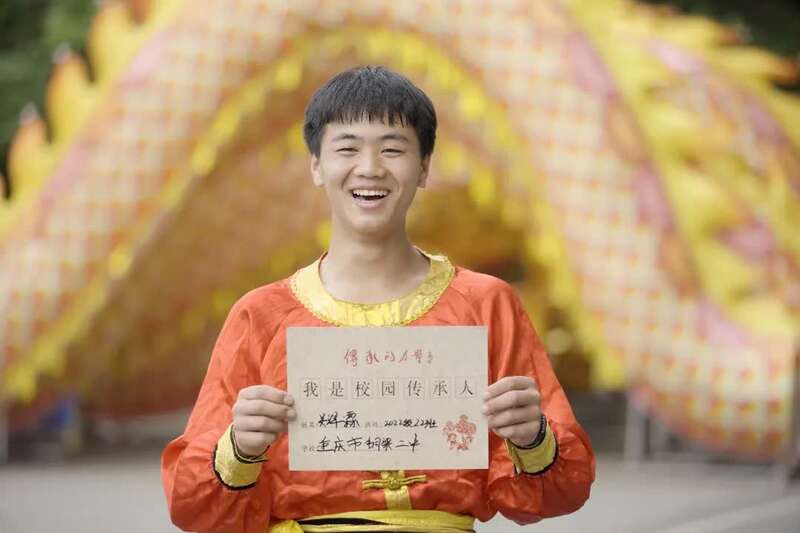 传承的力量
我是校园传承人
姓名 班级:2022级22班
学校 重庆市铜梁二中